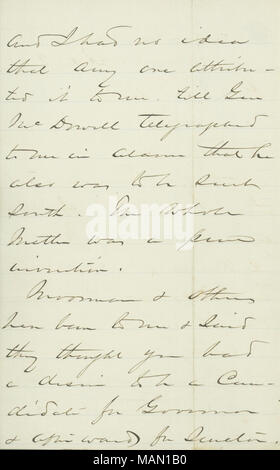 and I had no idea
that any one attribu-
ted it to me. till Gen
McDowell Telegraphed
to me in alarm that he
also was to be sent
South. The whole
Matter was a pure
invention.
Moorman & others
have been to me & said
they thought you had
a desire to be a Can-
didate for Governor
& afterwards for Senator.
alamy
Image ID: MAN1B0
www.alamy.com